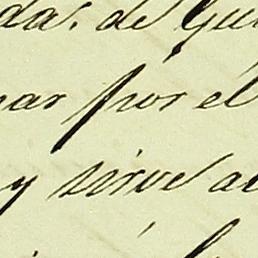 da. de
nar por el
y sirve a